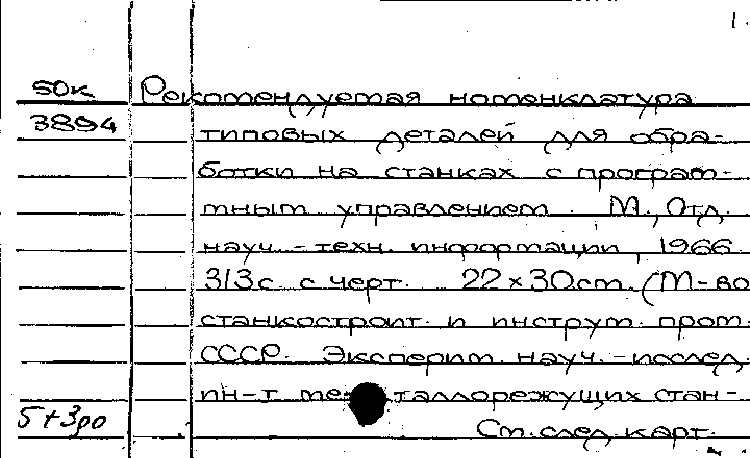 1.
50к Рекомендуемая номенклатура
3894 типовых деталей для обра-
ботки на станках с програм-
мным управлением. М., Отд.
науч.-техн. информации, 1966.
313с. с черт. 22×30см. (М-во
станкостроит. и инструм. пром.
СССР. Эксперим. науч.-исслед.
ин-т металлорежущих стан-
5+3ро См. след. карт.